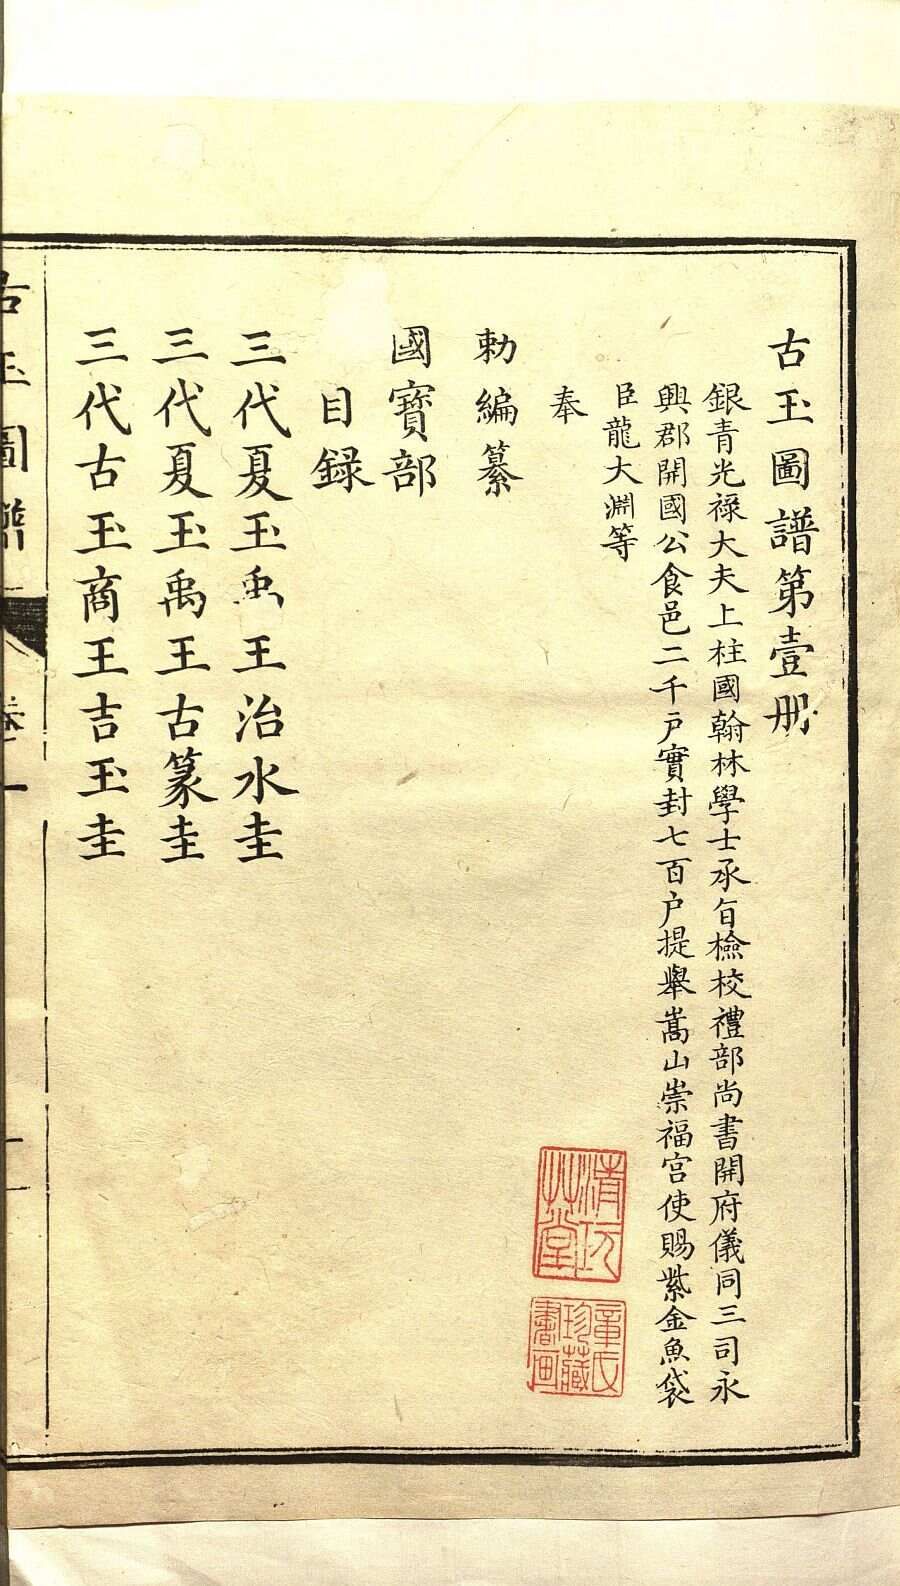 古玉圖譜第壹册
銀青光祿大夫上柱國翰林學士承旨檢校禮部尚書開府儀同三司永
興郡開國公食邑二千戶實封七百戶提舉嵩山崇福宮使賜紫金魚袋
臣龍大淵等
奉
勅編纂
國寶部
目録
三代夏玉禹王治水圭
三代夏玉禹王古篆圭
三代古玉商王吉玉圭
古玉圖譜
卷一
一
清玩
艸堂
章氏
珍藏
書画